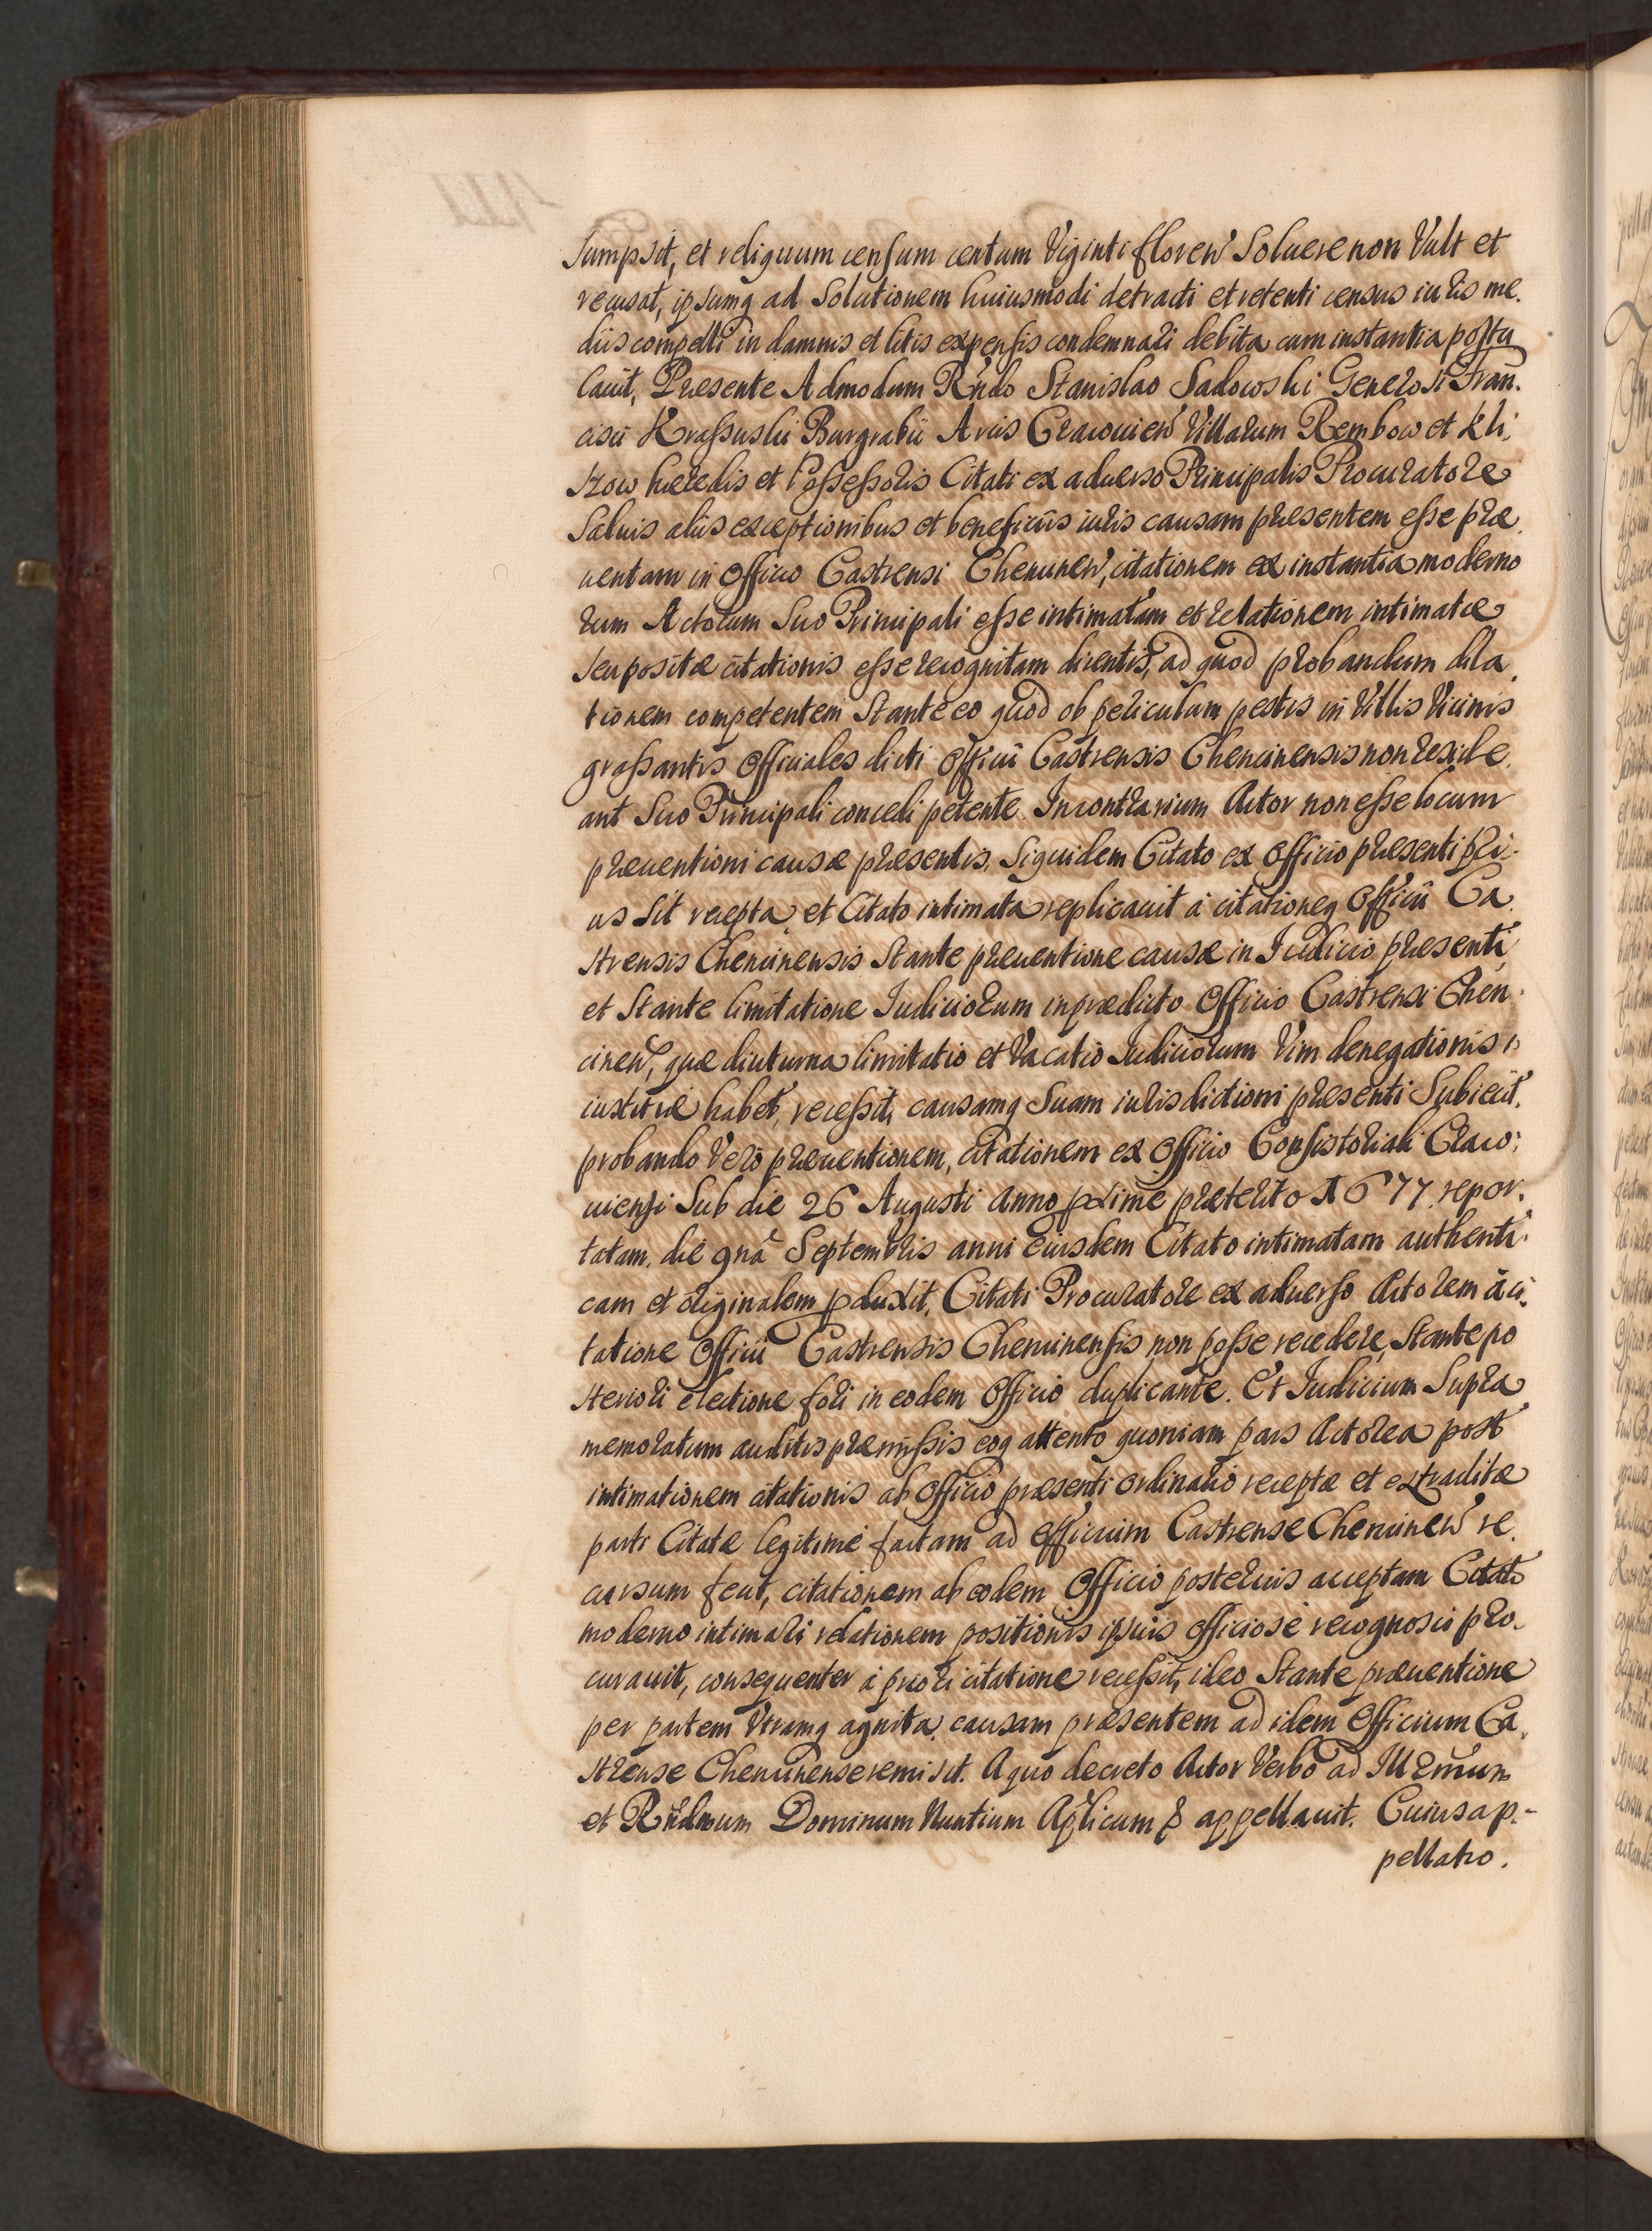 sumpsit, et reliquum censum centum Viginti floreñ Soluere non Vult et
recusat, ipsumq ad Solutionem huiusmodi detracti et retenti census iuris me.
diis compelli in damnis et litis expensis condemnari debita cum instantia postu
lauit, Præsente Admodum Rñdo Stanislao Sadowski Generosi Fran.
cisci Krassuski Burgrabii Arcis Cracouień Villarum Rembow et Kli,
szow hæredis et Possessoris Citati ex aduerso Principalis Procuratore
Saluis aliis exceptionibus et beneficiis iuris causam præsentem esse præ
uentam in Officio Castrensi Chencineñ, citationem ex instantia moderno
rum Actorum Suo Principali esse intimatam et relationem intimatæ
seu positæ citationis esse recognitam dicentis, ad quod probandum dila
tionem competentem Stante eo quod ob periculum pestis in Villis Vicinis
grassantis Officiales dicti Officii Castrensis Chencinensis non reside.
ant Suo Principali concedi petente. In contrarium Actor non esse locum
præuentioni causæ præsentis, Siquidem Citato ex Officio præsenti pri-
us sit recepta et Citato intimata replicauit à citationeq Officii Ca
strensis Chencinensis Stante præuentione causæ in Iudicio præsenti
et Stante limitatione Iudiciorum in prædicto Officio Castrensi Chen.
cineñ, quæ diuturna limitatio et Vacatio Iudiciorum Vim denegationis
iustitiæ habet, recessit, causamq Suam iurisdictioni præsenti Subiecit,
probando Vero præuentionem, citationem ex Officio Consistoriali Craco:
uiensi Sub die 26 Augusti anno pxime præterito 1677 repor.
tatam, die 9nâ Septembris anni eiusdem Citato intimatam authenti
cam et originalem pduxit, Citati Procuratore ex aduerso Actorem à ci.
tatione Officii Castrensis Chencinensis non posse recedere, Stante po
steriori electione fori in eodem Officio duplicante. Et Iudicium Supra
memoratum auditis præmissis eoq attento quoniam pars Actorea post
intimationem citationis ab Officio præsenti ordinario receptæ et extraditæ
parti Citatæ legitime factam ad officium Castrense Chencineñ re.
cursum fecit, citationem ab eodem Officio posterius acceptam Citato
moderno intimari relationem positionis ipsius officiose recognosci pro.
curauit, consequenter à priori citatione recessit, ideo Stante præuentione
per partem Vtramq agnita causam præsentem ad idem Officium Ca.
strense Chencinense remisit. A quo decreto Actor Verbo ad Illrm̃um
et Rñdmum Dominum Nuntium Aplicum & appellauit. Cuius ap-
pellatio.